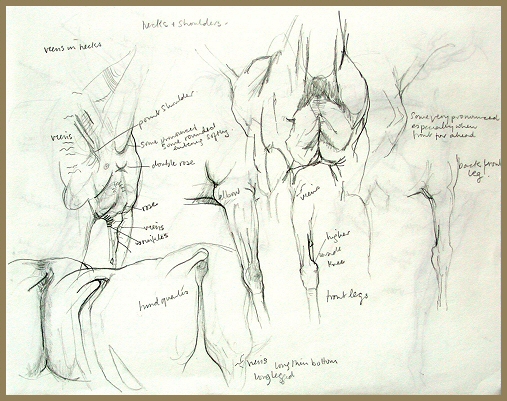 necks + shoulders.
veins in necks
point shoulder
veins
some pronounced
some rounded
entering softly
double rose
rose
veins
wrinkles
elbow
veins
higher
inside
knee
front legs
Some very pronounced
especially when
front far ahead
back front
leg
hind quarters
veins long thin bottom
long legged